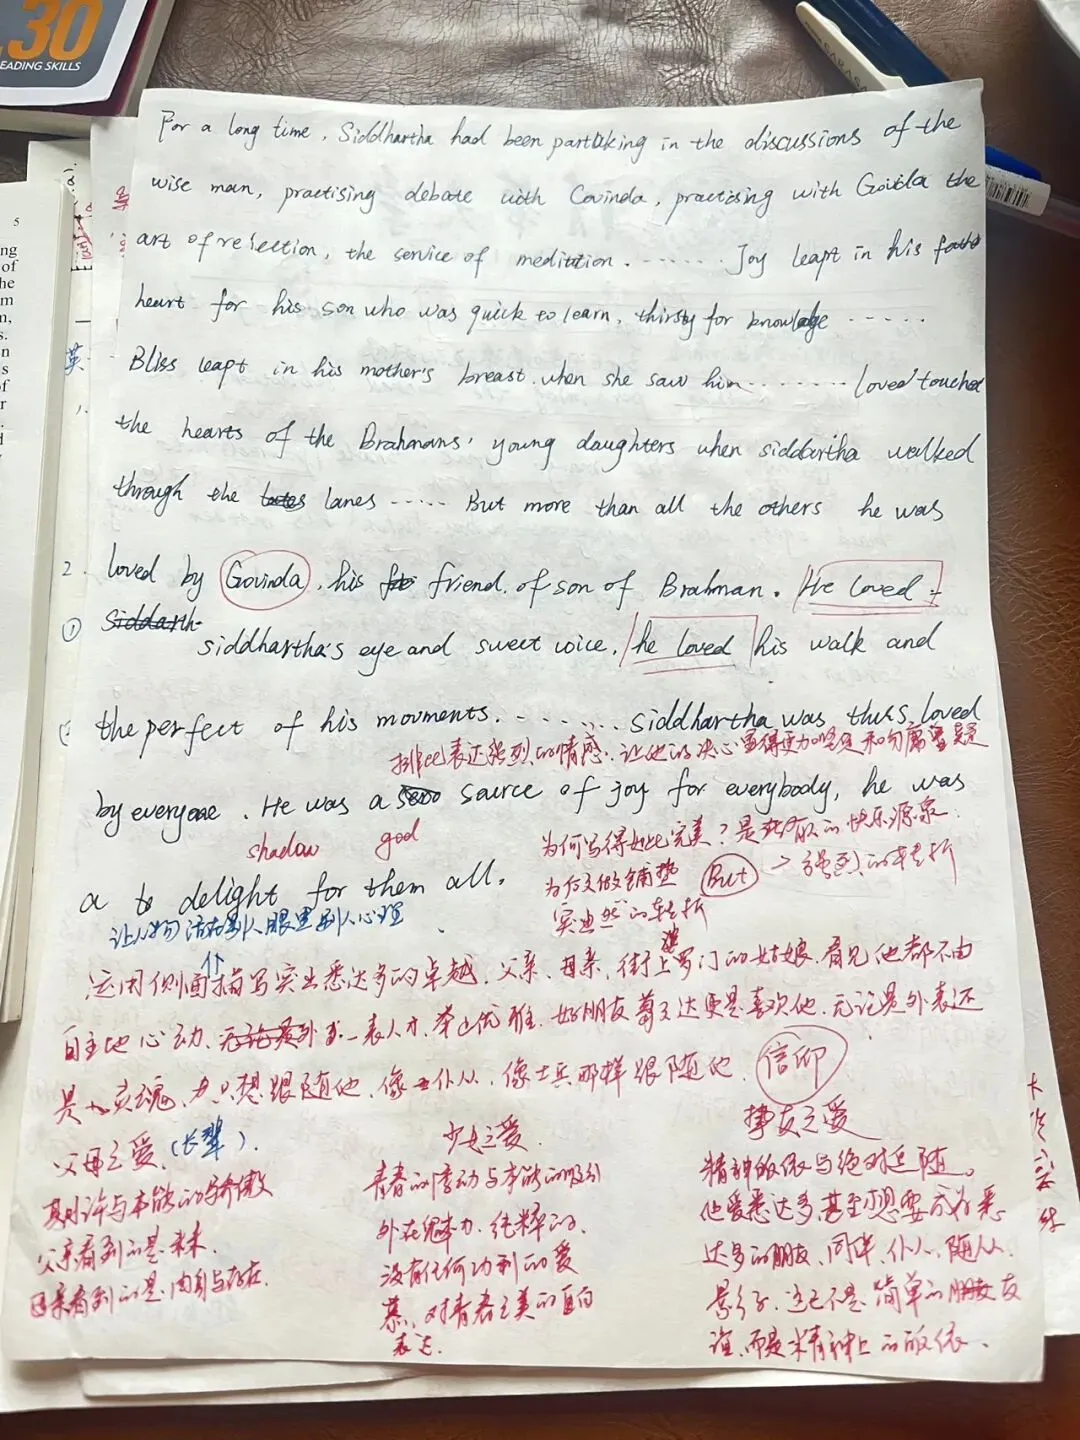 .30
EADING SKILLS
5
ng
of
he
m
n,
s.
n
s
of
r
英
For a long time, Siddhartha had been parttaking in the discussions of the
wise man, practising debate with Covinda, practising with Govida the
art of reflection, the service of meditation. ...... Joy leapt in his
heart for his son who was quick to learn, thirsty for knowladge ......
Bliss leapt in his mother's breast when she saw him ....... loved touched
the hearts of the Brahmans' young daughters when siddartha walked
through the lanes ..... But more than all the others he was
2. loved by Govinda, his friend. of son of Brahman. He loved
① Siddarth-
siddhartha's eye and sweet voice, he loved his walk and
the perfect of his movments. ....... siddhartha was thus loved
排比表达强烈的情感,让他的决心显得更加坚定和勿庸置疑
by everyone. He was a source of joy for everybody, he was
shadow god
为何写得如此完美?是所有的快乐源泉
a to delight for them all.
为后文做铺垫 But → 强烈的转折
突然的转折
让人物活在别人眼里别人心理
运用侧面描写突出悉达多的卓越,父亲、母亲、街上婆罗门的姑娘,看见他都不由
自主地心动、无论是外 一表人才,举止优雅,好朋友 更是喜欢他,无论是外表还
是灵魂, 只想跟随他,像仆从,像士兵那样跟随他 信仰
父母之爱(长辈).
期许与本能的骄傲
父亲看到的是未来.
母亲看到的是肉身与存在
少女之爱.
青春的悸动与本能的吸引
外在魅力,纯粹的,
没有任何功利的爱
慕,对青春之美的直白
表达.
挚友之爱
精神皈依与绝对追随。
他爱悉达多,甚至想要成为悉
达多的朋友、同伴、仆人、随从、
影子,这已不是简单的朋友友
谊,而是精神上的皈依.